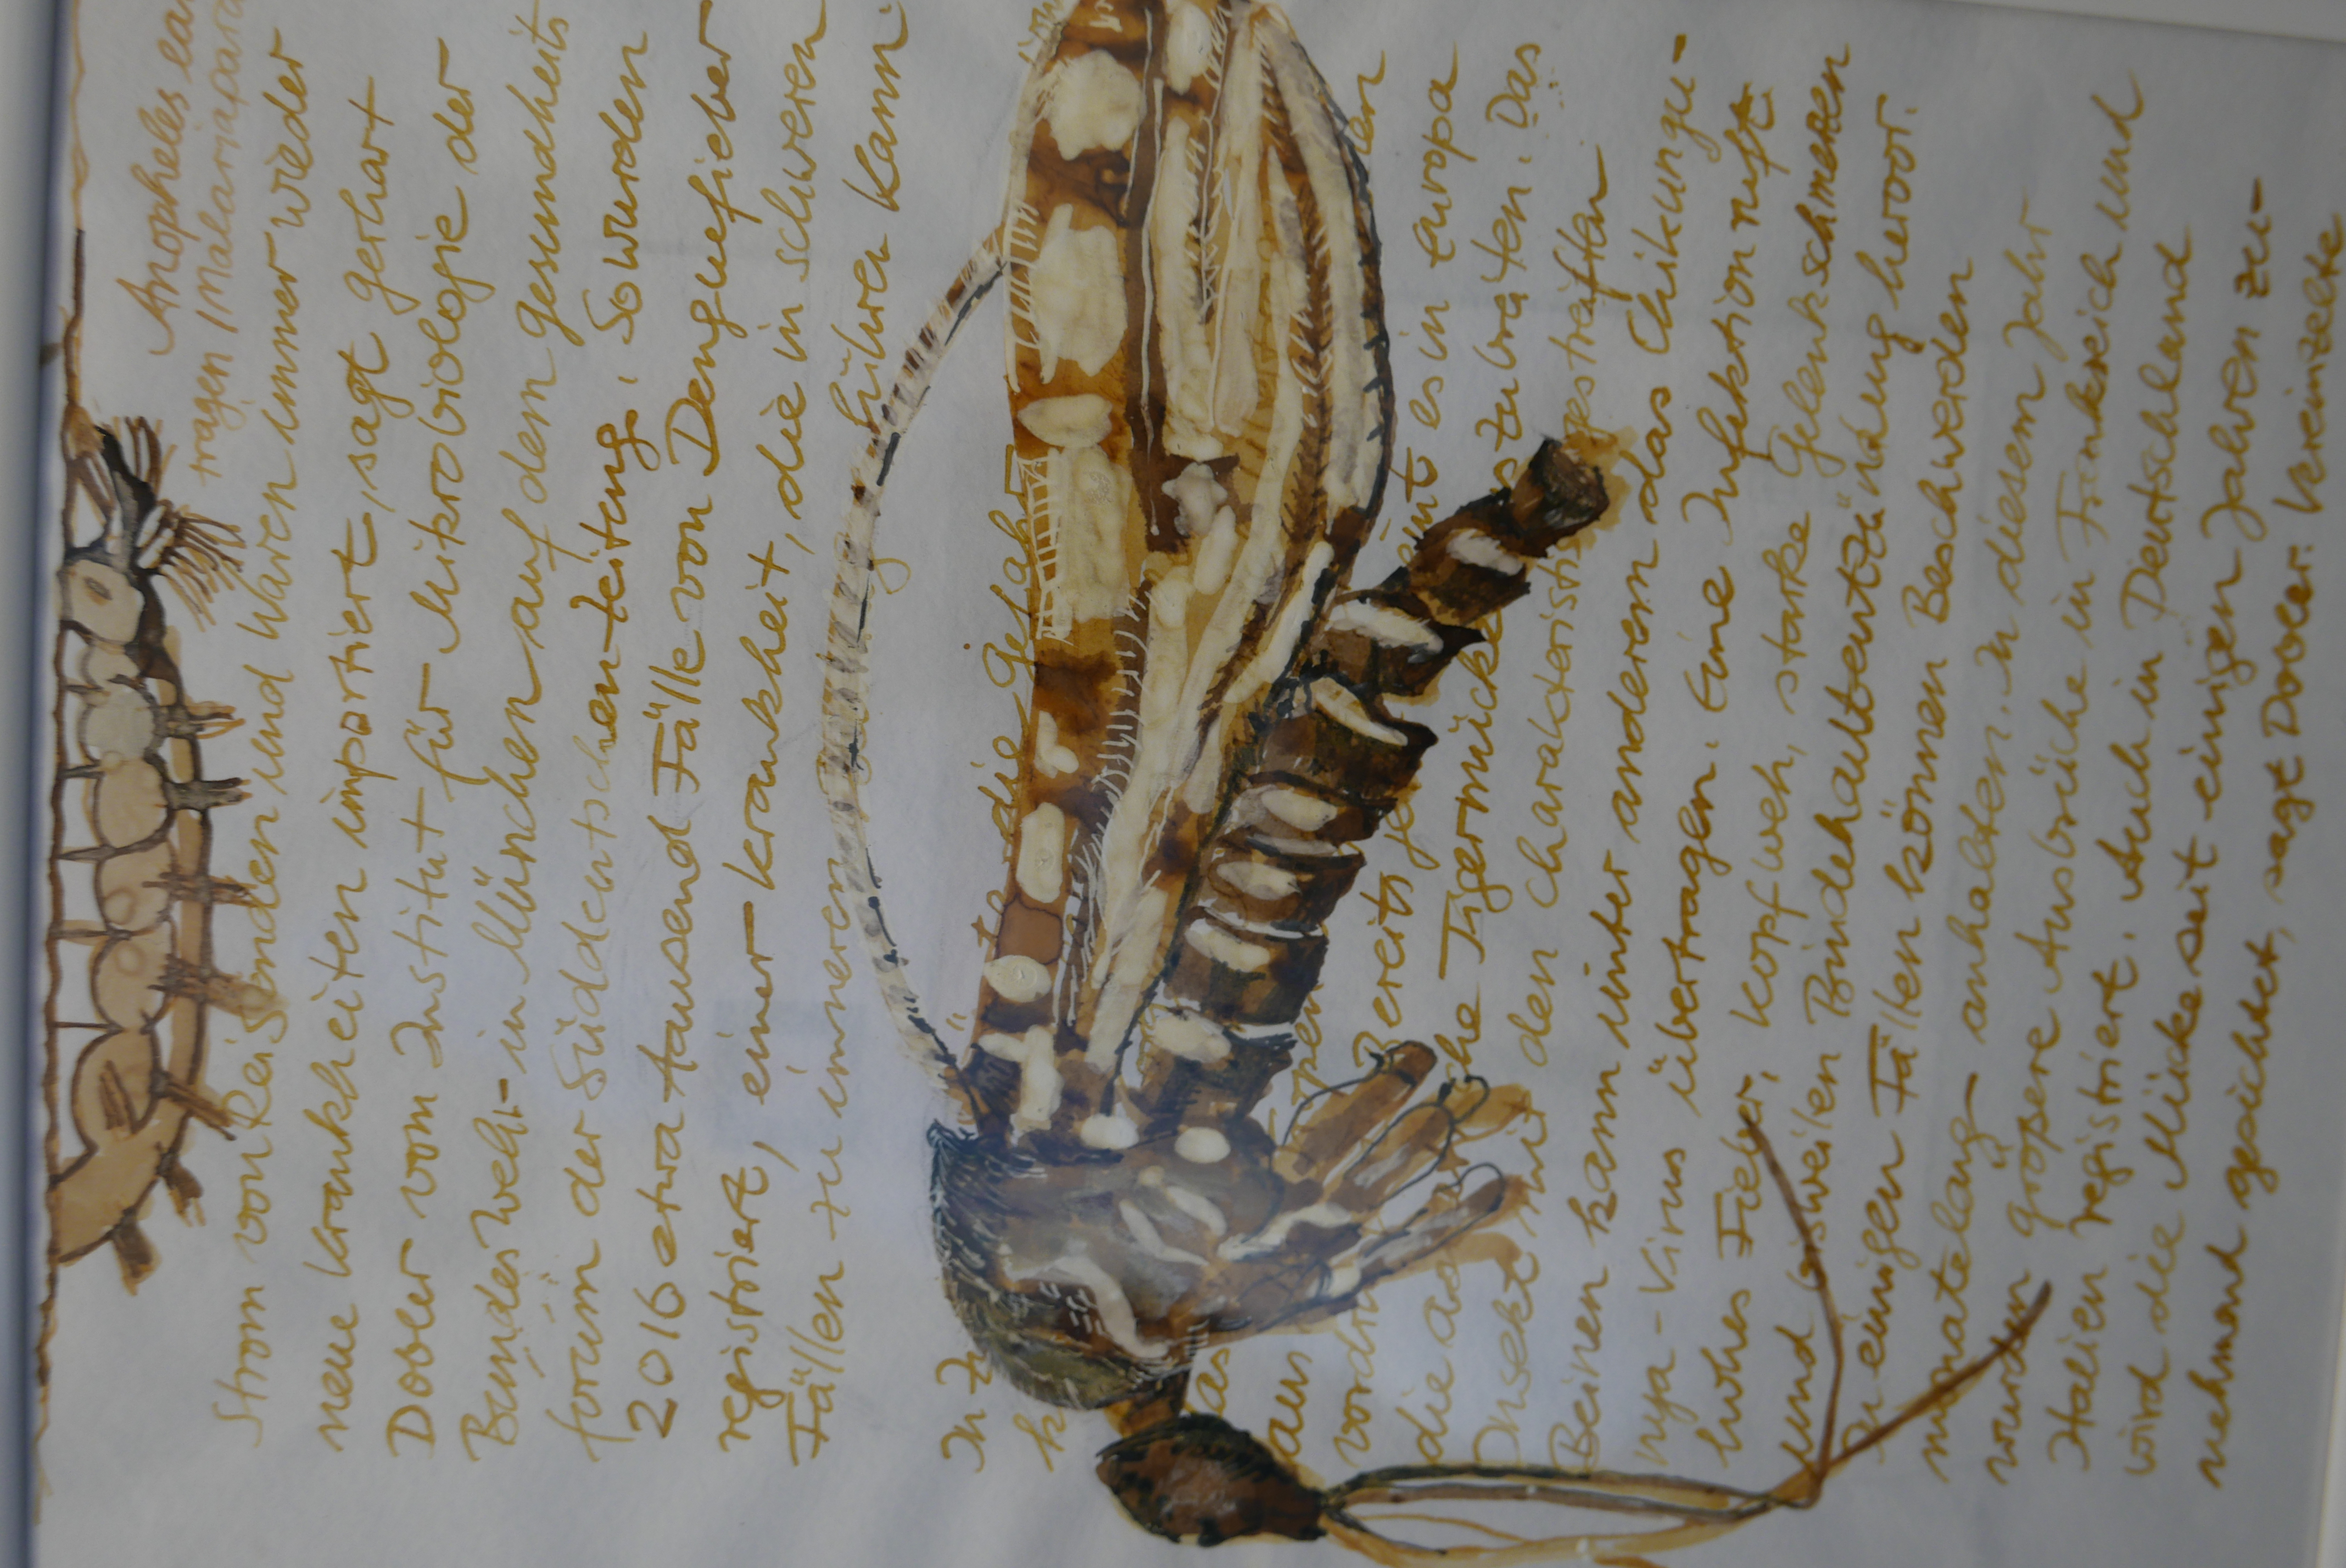 Anopheles
tragen (Malariapara
Strom von Reisenden und Waren immer wieder
neue Krankheiten importiert, sagt Gerhart
Dobler vom Institut für Mikrobiologie der
Bundeswehr in München auf dem Gesundheits
forum der Süddeutschen Zeitung. So wurden
2016 etwa tausend Fälle von Denguefieber
registriert, einer Krankheit, die in schweren
Fällen zu inneren führen kann.
In die Gefahr
aus
Bereits es in Europa
die Tigermücke Das
Insekt mit den charakteristi gestreiften
Beinen kann unter anderem das Chikungu-
nya-Virus übertragen. Eine Infektion ruft
hohes Fieber, Kopfweh, starke Gelenkschmerzen
und bisweilen Bindehautentzündung hervor.
In einigen Fällen können Beschwerden
monatelang anhalten. In diesem Jahr
wurden größere Ausbrüche in Frankreich und
Italien registriert. Auch in Deutschland
wird die Mücke seit einigen Jahren zu-
nehmend gesichtet, sagt Dobler. Vereinzelte